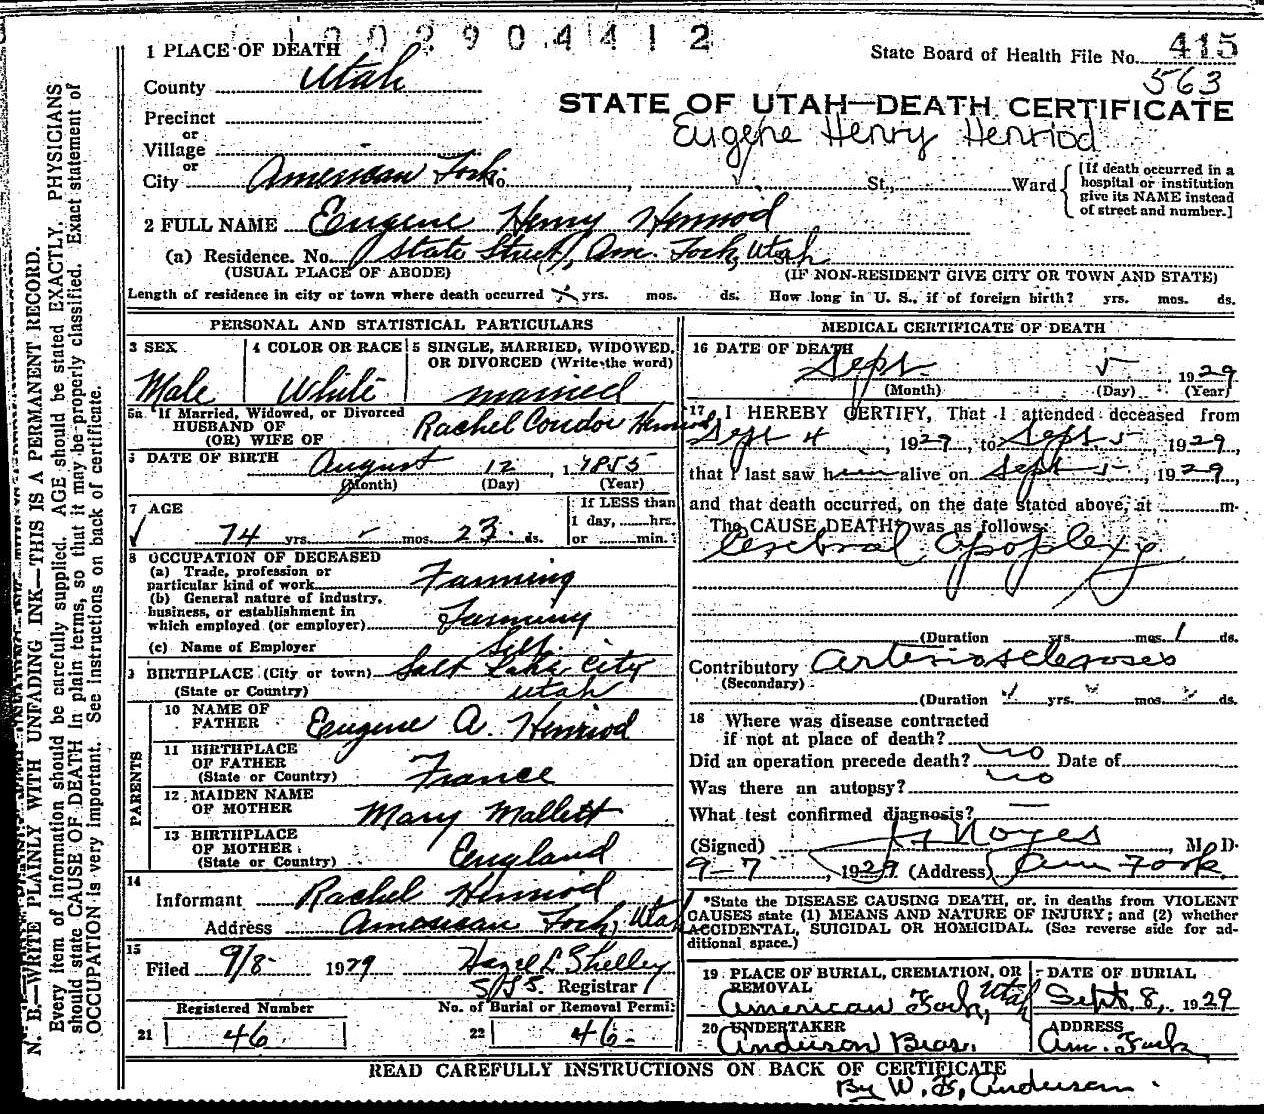 1002904412
1 PLACE OF DEATH
State Board of Health File No. 415
563
County Utah
STATE OF UTAH—DEATH CERTIFICATE
Precinct
Eugene Henry Henriod
or
Village
or
City American Fork No. , St., Ward
[If death occurred in a
hospital or institution
give its NAME instead
of street and number.]
2 FULL NAME Eugene Henry Henriod
(a) Residence. No. State Street, Am. Fork, Utah
(USUAL PLACE OF ABODE) (IF NON-RESIDENT GIVE CITY OR TOWN AND STATE)
Length of residence in city or town where death occurred yrs. mos. ds. How long in U. S., if of foreign birth? yrs. mos. ds.
PERSONAL AND STATISTICAL PARTICULARS
3 SEX
Male
4 COLOR OR RACE
White
5 SINGLE, MARRIED, WIDOWED,
OR DIVORCED (Write the word)
married
5a If Married, Widowed, or Divorced
HUSBAND OF
(OR) WIFE OF
Rachel Condor Henriod
6 DATE OF BIRTH August 12, 1855
(Month) (Day) (Year)
7 AGE
74 yrs. mos. 23 ds.
If LESS than
1 day, hrs.
or min.
8 OCCUPATION OF DECEASED
(a) Trade, profession or
particular kind of work Farming
(b) General nature of industry,
business, or establishment in
which employed (or employer) Farming
(c) Name of Employer Self
9 BIRTHPLACE (City or town) Salt Lake City
(State or Country) Utah
PARENTS
10 NAME OF
FATHER Eugene A. Henriod
11 BIRTHPLACE
OF FATHER
(State or Country) France
12 MAIDEN NAME
OF MOTHER Mary Mallett
13 BIRTHPLACE
OF MOTHER
(State or Country) England
14
Informant Rachel Henriod
Address American Fork, Utah
15
Filed 9/8 1929 Hazel L Shelley
Registrar
Registered Number No. of Burial or Removal Permi:
21 46 22 46
MEDICAL CERTIFICATE OF DEATH
16 DATE OF DEATH
Sept. 5, 1929
(Month) (Day) (Year)
17 I HEREBY CERTIFY, That I attended deceased from
Sept 4, 1929, to Sept 5, 1929,
that I last saw him alive on Sept 5, 1929,
and that death occurred, on the date stated above, at m.
The CAUSE DEATH was as follows:
Cerebral apoplexy
(Duration yrs. mos. 1 ds.
Contributory Arteriosclerosis
(Secondary)
(Duration yrs. mos. ds.
18 Where was disease contracted
if not at place of death?
Did an operation precede death? no Date of
Was there an autopsy? no
What test confirmed diagnosis? —
(Signed) Noyes, M. D.
9-7, 1929 (Address) Am Fork
*State the DISEASE CAUSING DEATH, or, in deaths from VIOLENT
CAUSES state (1) MEANS AND NATURE OF INJURY; and (2) whether
ACCIDENTAL, SUICIDAL OR HOMICIDAL. (See reverse side for ad-
ditional space.)
19 PLACE OF BURIAL, CREMATION, OR
REMOVAL
American Fork, Utah
DATE OF BURIAL
Sept. 8, 1929
20 UNDERTAKER
Anderson Bros.
ADDRESS
Am. Fork
READ CAREFULLY INSTRUCTIONS ON BACK OF CERTIFICATE
By W. Anderson.
N. B.—WRITE PLAINLY WITH UNFADING INK—THIS IS A PERMANENT RECORD.
Every item of information should be carefully supplied. AGE should be stated EXACTLY. PHYSICIANS
should state CAUSE OF DEATH in plain terms, so that it may be properly classified. Exact statement of
OCCUPATION is very important. See instructions on back of certificate.